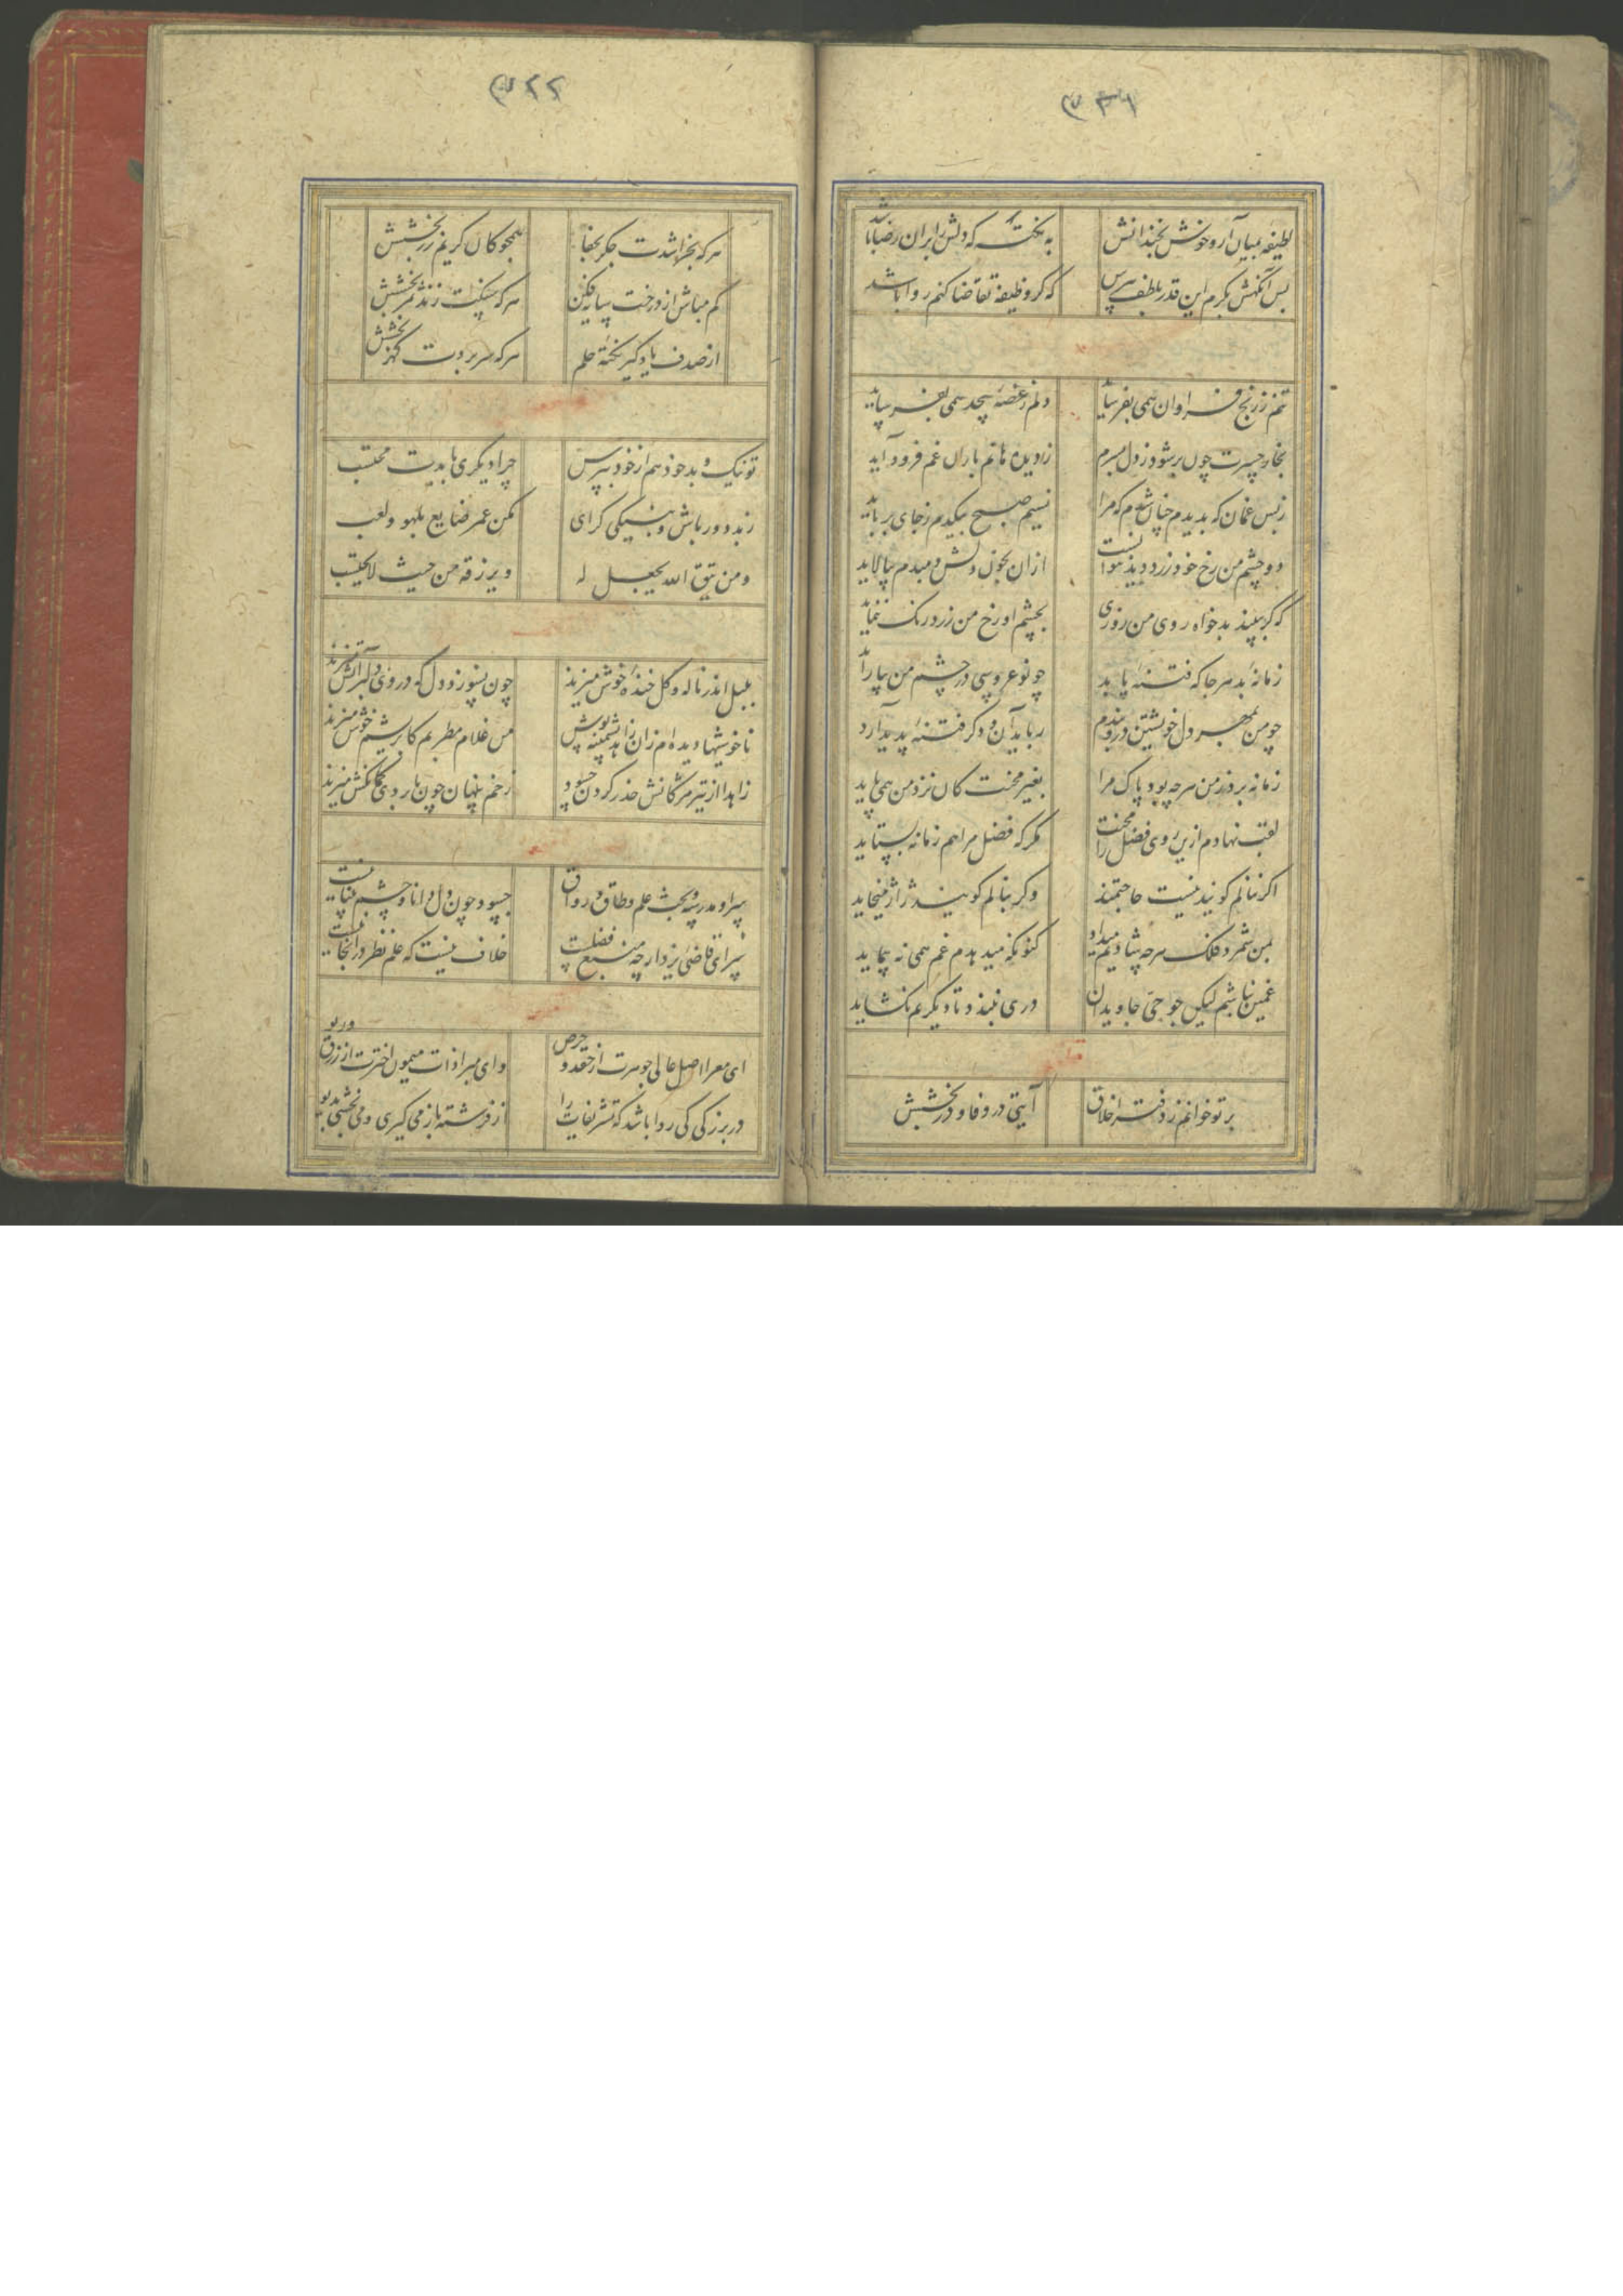 لطیفه بمیان آر و خوش بخندانش به نکته که دلش را بران رضا باشد
پس آنگهش بکرم این قدر بلطف بپرس که گر وظیفه تقاضا کنم روا باشد
تنم ز رنج فراوان همی بفرساید دلم ز غصه بیحد همی بفرساید
بخار حسرت چون بر شود ز دل بسرم ز دیده هاتم باران غم فرود آید
ز بس غمان که بدیدم چنان شدم که مرا نسیم صبح بیکدم ز جای برباید
دو چشم من رخ خود زرد دید نتوانست از آن بخون دلش دمبدم بیالاید
که گر ببیند بدخواه روی من روزی بچشم او رخ من زرد رنگ ننماید
زمانه بد هر جا که فتنه یابد چو نو عروسی در چشم من بیاراید
چو من بمهر دل خویشتن درو بندم رباید آن و دگر فتنه پدید آرد
زمانه بر در من هرچه بود پاک مرا بغیر محنت کان نزد من همی پاید
لقب نهادم ازین روی فضل را محنت مگر که فضل مرا هم زمانه بستاید
اگر ننالم گویند نیست حاجتمند وگر بنالم گویند ژاژ میخاید
بمن شمرد فلک هرچه شادیم میداد کنونکه میدهدم غم همی نه پیماید
غمین نباشم لیکن چو حی جاویدان دری نبندد تا دیگرم نگشاید
بر تو خوانم ز دفتر اخلاق آیتی در وفا و در بخشش
۳۲۲
هرکه بخراشدت جگر بجفا همچو کان کریم زر بخشش
کم مباش از درخت سایه فکن هرکه سنگت زند ثمر بخشش
از صدف یاد گیر نکته حلم هرکه سر بردت گهر بخشش
تو نیک و بد خود هم از خود بپرس چرا دیگری بایدت محتسب
ز بد دور باش و به نیکی گرای مکن عمر ضایع بلهو و لعب
ومن یتق الله یجعل له ویرزقه من حیث لا یحتسب
بلبل اندر ناله و گل خنده خوش میزند چون نسوزد دل که دلبر در وی آتش میزند
ناخوشیها دیده ام زان زاهد پشمینه پوش من غلام مطربم کابریشم خوش میزند
زاهدا از تیر مژگانش حذر کردن چه سود زخم پنهان چون بابروی کمانکش میزند
سرا و مدرسه و بحث علم و طاق و رواق چه سود چون دل دانا و چشم بینا نیست
سرای قاضی یزد ارچه منبع فضلست خلاف نیست که علم نظر در آنجا نیست
ای معرا اصل عالی جوهرت از حقد و حرص وای مبرا ذات میمون اخترت از زرق و ریو
در بزرگی کی روا باشد که تشریفات را از فرشته باز میگیری و می بخشی بدیو